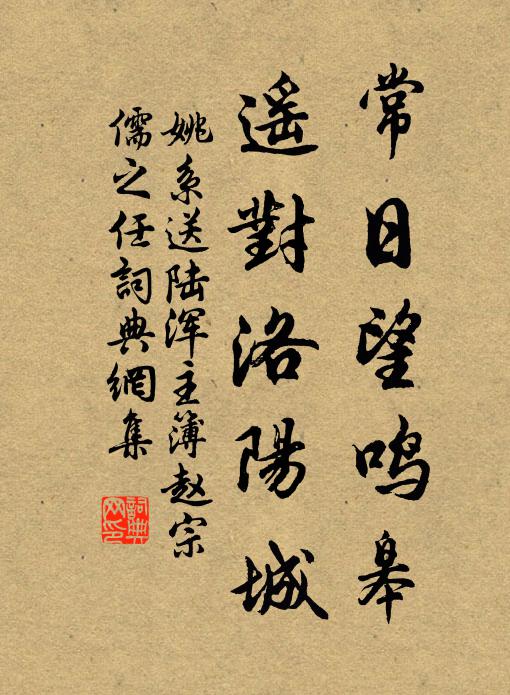 常日望鸣皋
遥對洛陽城
姚系送陆浑主簿赵宗
儒之任詞典網集
詞典
网印